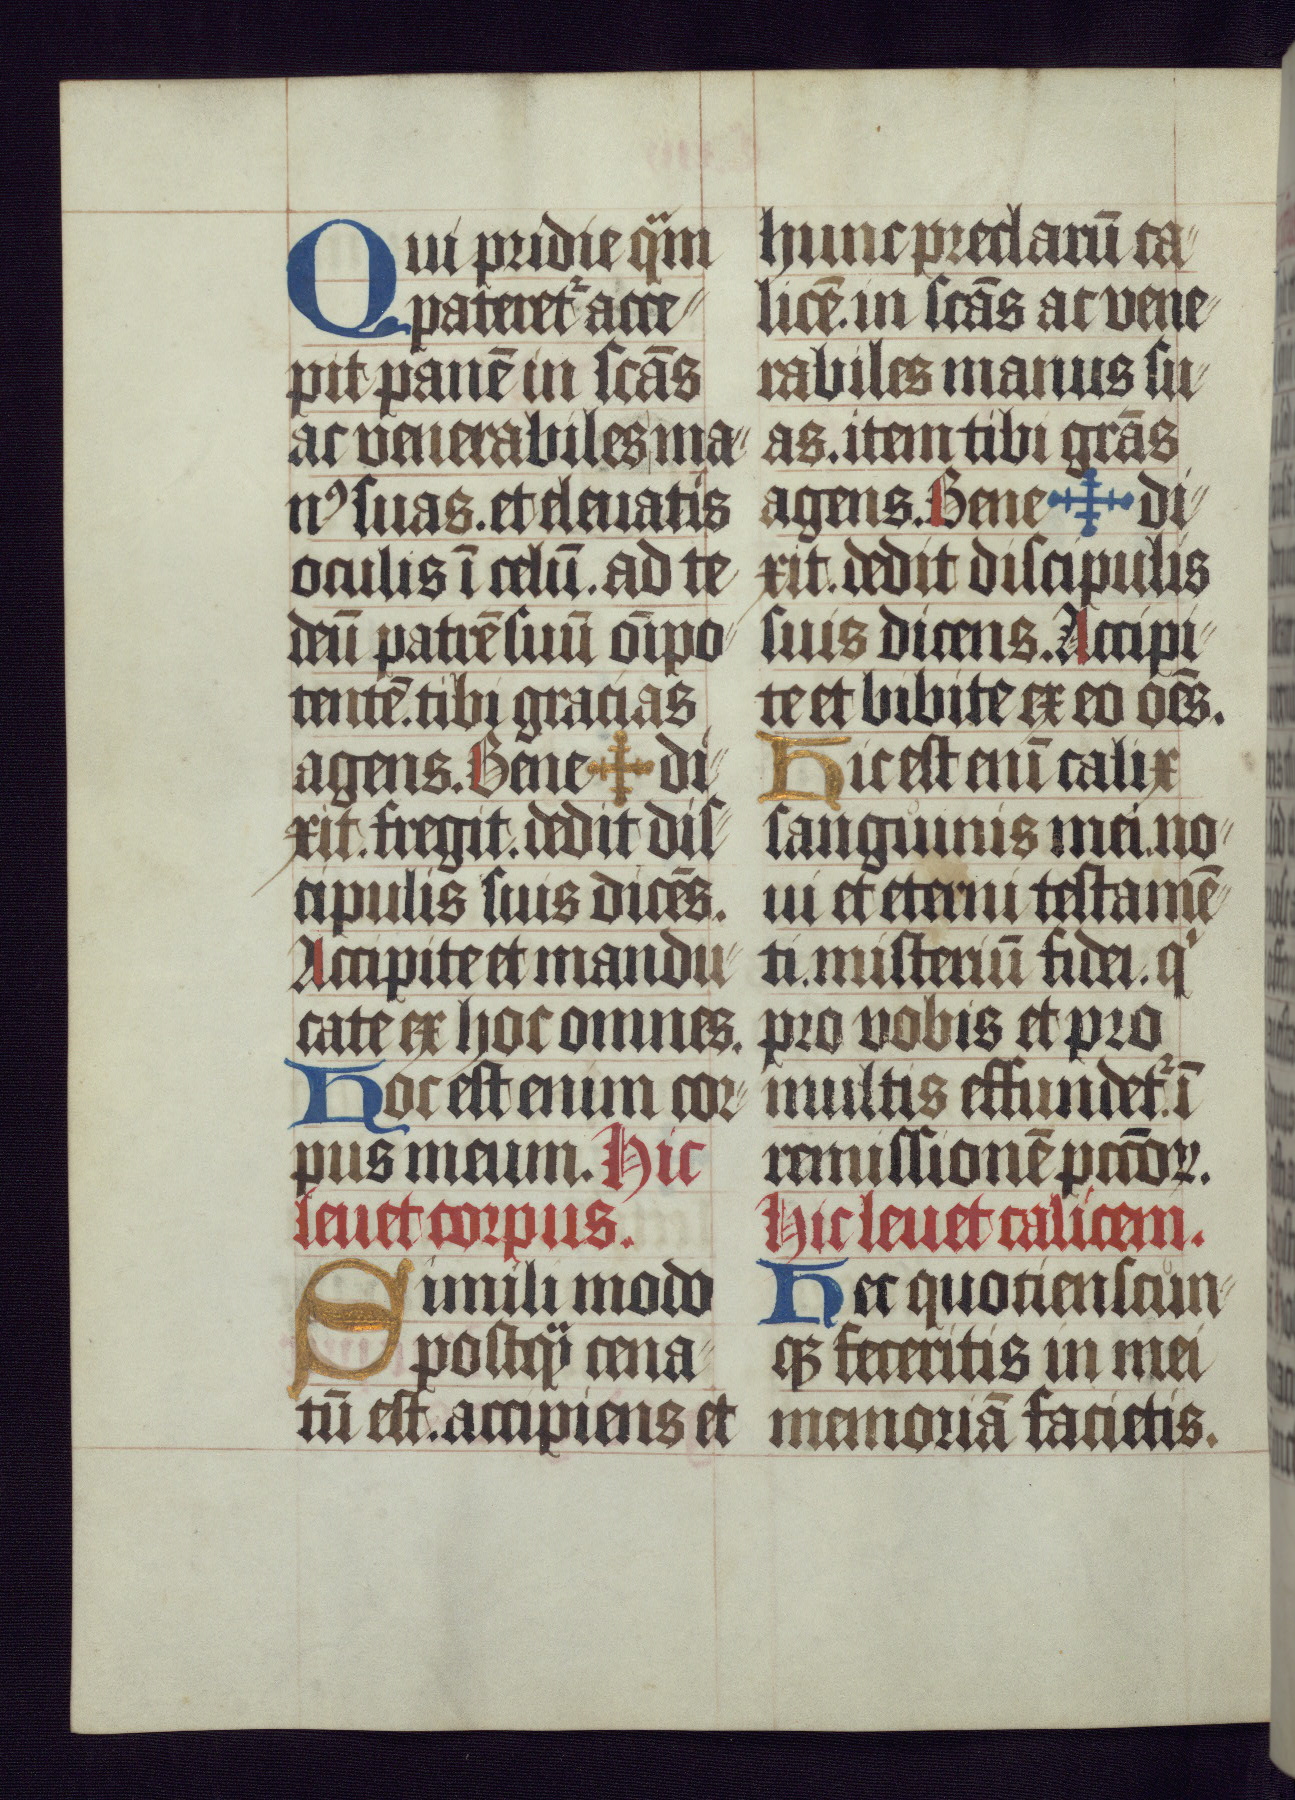 Qui pridie qᵃm
pateret᷑ acce⸗
pit panē in scās
ac venerabiles ma⸗
nꝰ suas. et eleuatis
oculis ī celū. ad te
deū patrē suū oīpo⸗
tentē. tibi gracias
agens. Bene ✠ di⸗
xit. fregit. dedit dis⸗
cipulis suis dicēs.
Accipite et mandu⸗
cate ex hoc omnes.
Hoc est enim cor⸗
pus meum. Hic
leuet corpus.
Simili modo
postqᵃ cena⸗
tū est. accipiens et
hunc preclarū ca⸗
licē. in scās ac vene⸗
rabiles manus su⸗
as. item tibi grās
agens. Bene ✠ di⸗
xit. dedit discipulis
suis dicens. Accipi⸗
te et bibite ex eo oēs.
Hic est enī calix
sanguinis mei. no⸗
ui et eterni testamē⸗
ti. misteriū fidei. qⁱ
pro vobis et pro
multis effundet᷑. ī
remissionē pccōꝝ.
Hic leuet calicem.
Hec quotienscun⸗
qꝫ feceritis in mei
memoriā facietis.